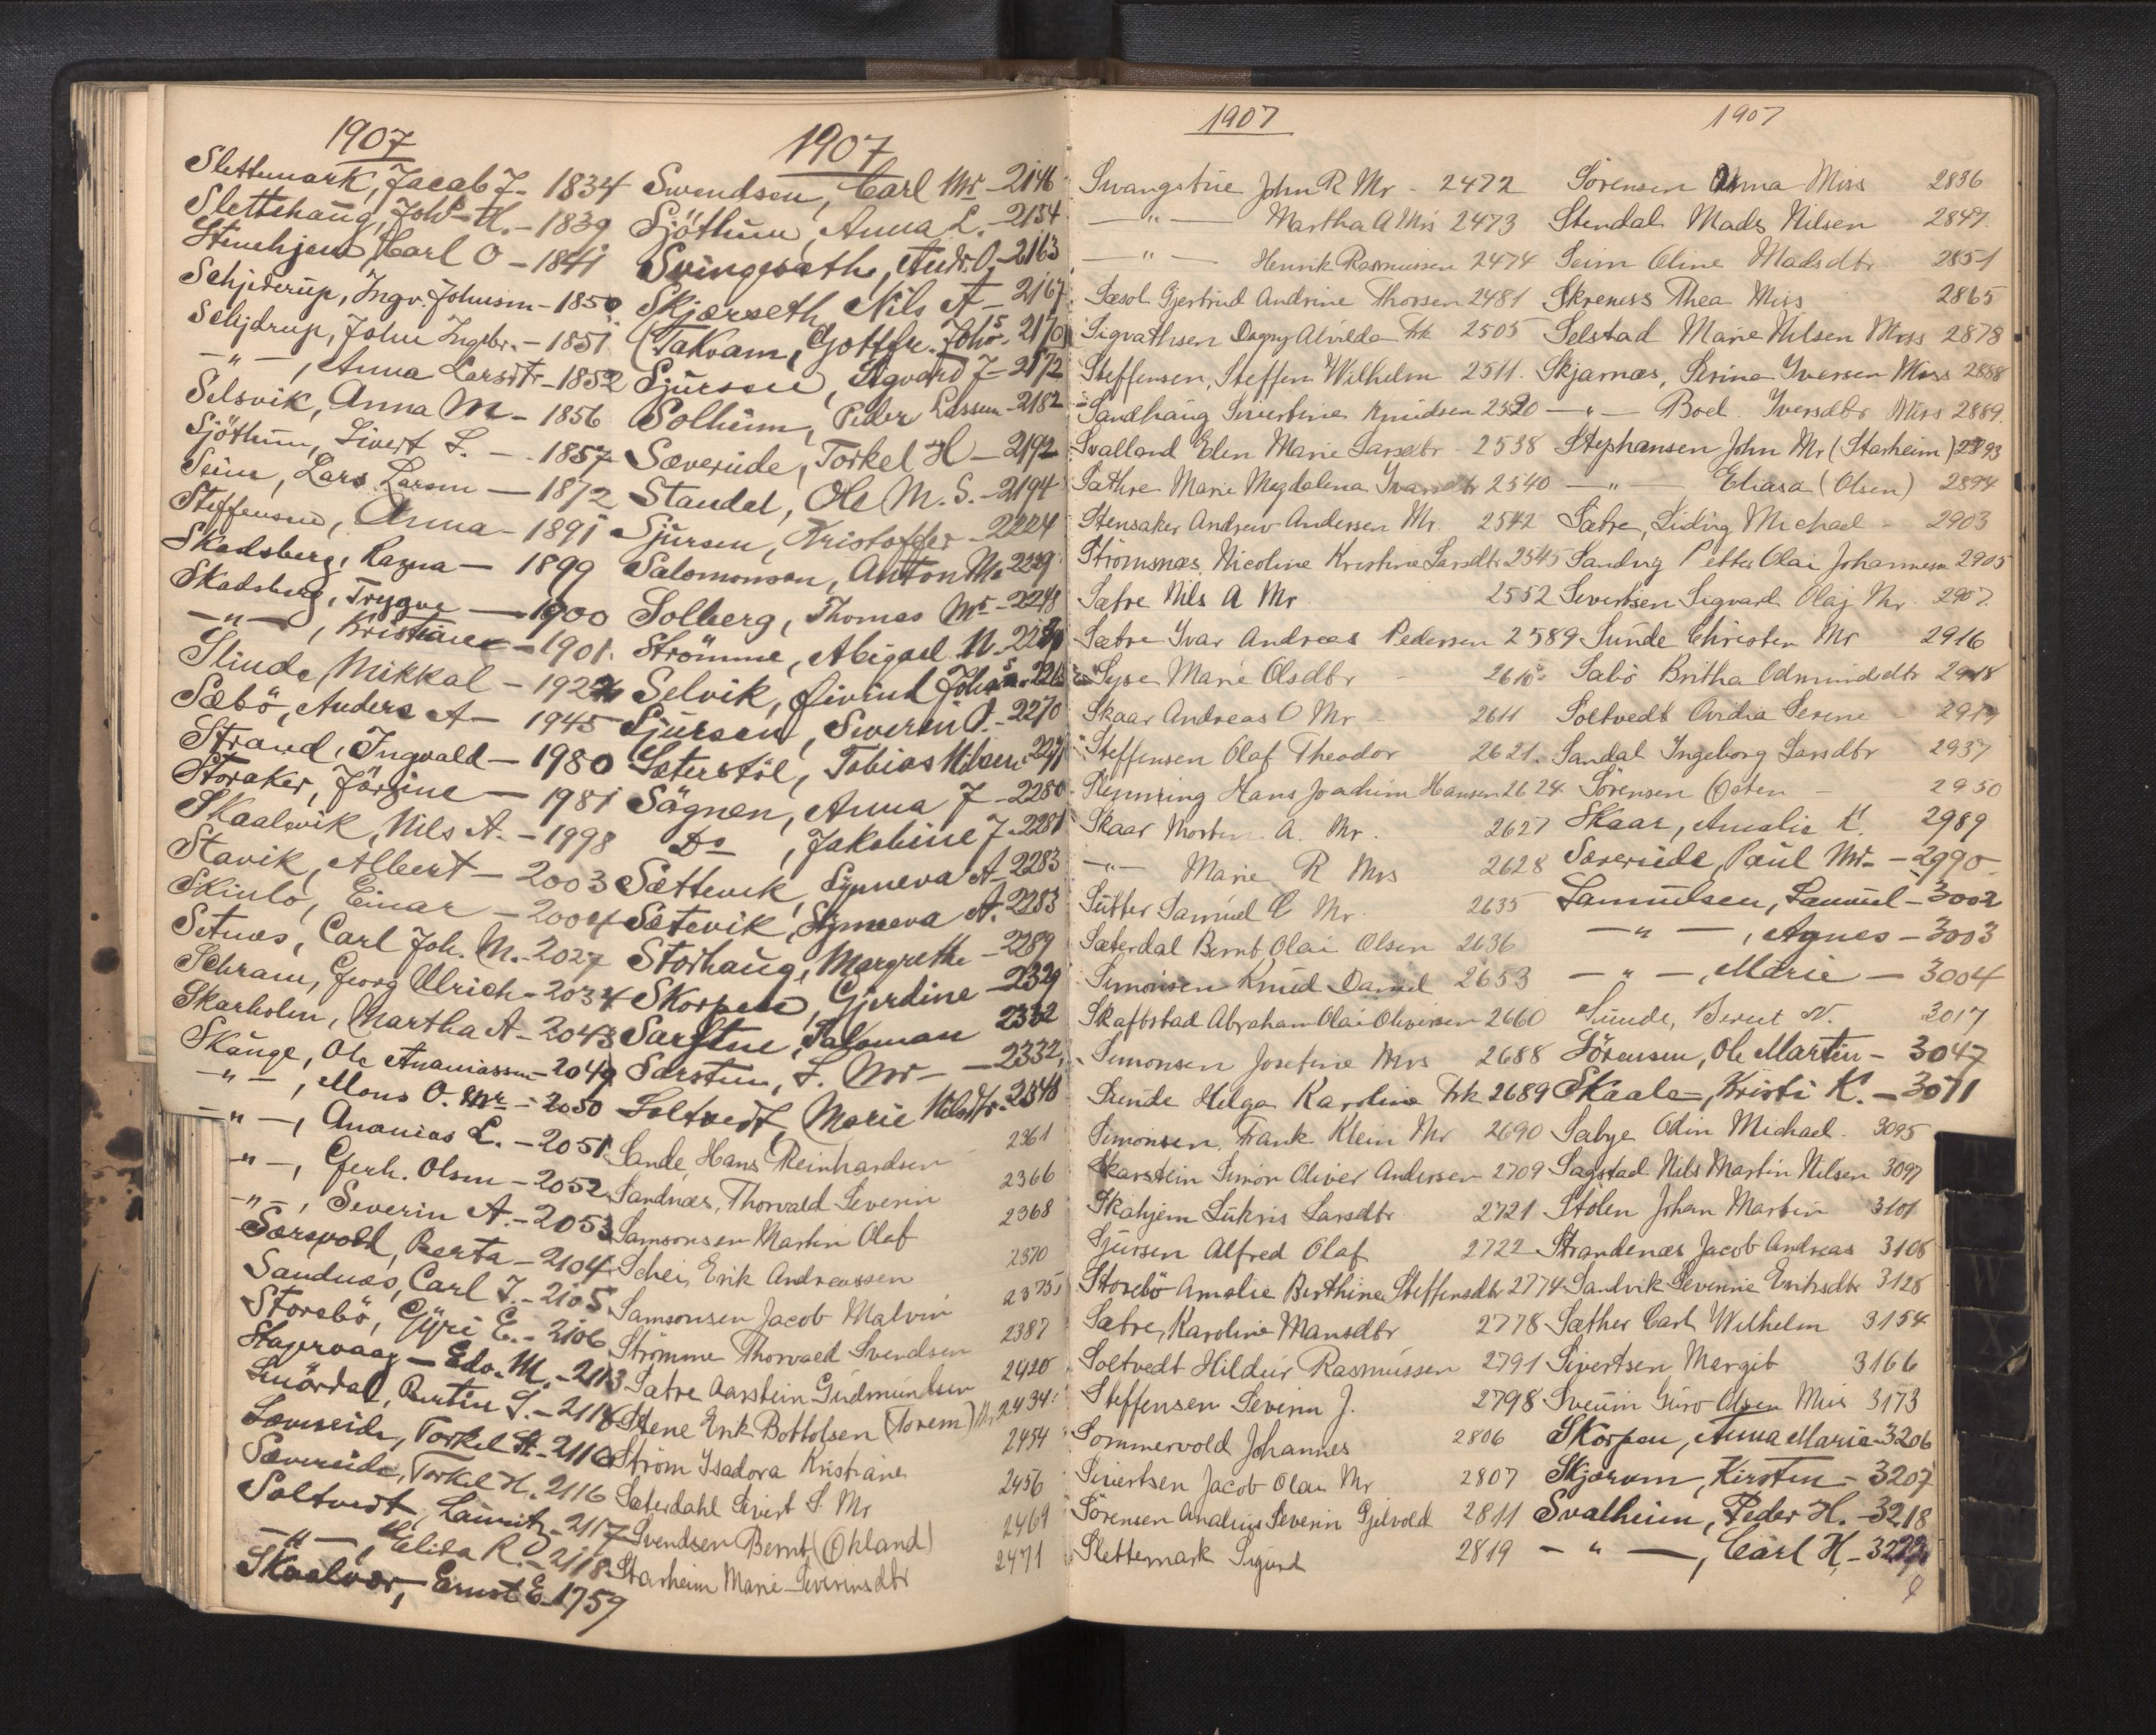 1907
Slettemark, Jacob J. - 1834
Slettehaug, Johs H. - 1839
Stenehjem Carl O - 1841
Schjderup, Ingv. Johnsen - 1850
Schjdrup, John Ingebr. - 1851
- " -, Anna Larsdtr - 1852
Selsvik, Anna M - 1856
Sjöthun, Sivert S. - 1857
Seim, Lars Larsen - 1872
Steffensen, Anna - 1891
Skadsberg, Ragna - 1899
Skadsberg, Trygve - 1900
- " -, Kristiane - 1901
Slinde, Mikkal - 192
Sæbö, Anders A - 1945
Strand, Ingvald - 1980
Storaker, Jörgine - 1981
Skaalevik, Nils A. - 1998
Stavik, Albert - 2003
Skinlo, Einar - 2004
Setnæs, Carl Joh. M. - 2027
Schram, Georg Ulrich - 2034
Skarholm, Martha A - 2043
Skauge, Ole Ananiassen - 2049
- " -, Mons O. Mr - 2050
- " -, Ananias L. - 2051
- " -, Gerh. Olsen - 2052
- " -, Severin A. - 2053
Særsvold, Berta - 2104
Sandnæs, Carl J. - 2105
Storebö, Gjøri E. - 2106
Stagervaag - Edv. M. - 2113
Smördal, Bertin S. - 2114
Sæverside, Torkel H. - 2116
Sæverside, Torkel H. 2116
Soltvedt, Lauritz - 2117
- " -, Elida R. - 2118
Skaalvær, Ernst E - 1759
1907
Swendsen, Carl Mr - 2146
Sjöthun, Anna L. - 2154
Svingesæth, Andr. O. - 2163
Skjærseth, Nils A - 2167
(Takvam, Gottfr. Johs. - 2170)
Sjursen, Sigvard J - 2172
Solheim, Peder Lassen - 2182
Sæverside, Torkel H - 2192
Standal, Ole M. S. - 2194
Sjursen, Kristoffer - 2224
Salomonsen, Anton M. 2239
Solberg, Thomas Mr - 2248
Strömme, Abigael N - 22
Selvik, Eivind Johs. - 226
Sjursen, Severin O. - 2270
Sæterstöl, Tobias Nilsen - 227
Sögnen, Anna J - 2280
Do, Jakobine J. 2281
Sættevik, Synneva A - 2283
Sætevik, Synneva A. 2283
Storhaug, Margrethe - 2289
Skorpen, Gjerdine - 2329
Sarsten, Salomon 2332
Sarsten, S. Mr - 2332
Soltvedt, Marie Nilsdtr. 2348
Sande, Hans Reinhardsen 2361
Sandnæs, Thorvald Severin 2366
Samsonsen Martin Olaf 2368
Schei, Erik Andreassen 2370
Samsonsen Jacob Malvin 2375
Strömme Thorvald Svendsen 2387
Sætre Aarstein Gudmundsen 2420
Stene Erik Bottolsen (Torem) Mr 2434
Ström Isadora Kristiane 2454
Sæterdahl Sivert S. Mr 2456
Svendsen Bernt (Økland) 2469
Starheim Marie Severinsdtr 2471
1907
Svangstue John R Mr - 2472
- " - Martha A Mrs 2473
- " - Henrik Rasmussen 2474
Sæsol Gjertrud Andrine Thorsen 2481
Sigvathsen Dagny Alvilda Frk 2505
Steffensen, Steffen Wilhelm 2511.
Sandhaug Sivertine Knudsen 2520
Svalland Elen Marie Larsdtr - 2538
Sæthre Marie Magdalena Ivarsdtr 2540
Stensaker Andrew Andersen Mr. 2542
Strömsnæs, Nicoline Kristine Larsdtr 2545
Sætre Nils A Mr 2552
Sætre Ivar Andreas Pedersen 2589
Syse Marie Olsdtr - 2610
Skaar Andreas O Mr - 2611
Steffensen Olaf Theodor 2621.
Hans Joachim Hansen 2624
Skaar Morten A. Mr. 2627
- " - Marie R Mrs 2628
Sutter Samuel C Mr. 2635
Sæterdal Bernt Olai Olsen 2636
Simonsen Knud Daniel 2653
Skaftstad Abraham Olai Oliversen 2660
Simonsen Josefine Mrs 2688
Sunde Helga Karoline Frk 2689
Simonsen, Frank Klein Mr 2690
Skarstein Simon Oliver Andersen - 2709
Skahjem Lukris Larsdtr 2721
Sjursen Alfred Olaf 2722
Storebö Amalie Berthine Steffensdtr 2774
Sætre, Karoline Mansdtr 2778
Soltvedt Hildur Rasmussen 2791
Steffensen Severin J. 2798
Sommervold Johannes 2806
Sivertsen Jacob Olai Mr 2807
Sörensen Anders Severin Gjelvold 2811
Slettemark Sigurd 2819
1907
Sörensen Anna Miss 2836
Stendal Mads Nilsen 2847
Seim Oline Madsdtr 2851
Skreness Thea Miss 2865
Selstad Marie Nilsen Miss 2878
Skjarnæs, Serina Iversen Miss 2888
- " - Boel. Iversdtr Miss 2889
Stephansen John Mr (Starheim) 2893
- " - Eliasa (Olsen) 2894
Sætre, Ludvig Michael - 2903
Sandvig Petter Olai Johannesen 2905
Severtsen Sigvard Olaj Mr. 2907.
Sunde Christen Mr 2916
Sabö Britha Odmundsdtr 2918
Soltvedt Ovidia Serine - 2919
Sandal Ingeborg Larsdtr 2937
Sörensen Osten - 2950
Skaar, Amalie K. 2989
Særeride, Paul Mr - 2990
Samuelsen, Samuel - 3002
- " -, Agnes - 3003
- " -, Marie - 3004
Sunde, Bernt N. 3017
Sörensen, Ole Martin - 3047
Skaale, Kristi K. - 3071
Sabye Odin Michael. 3095
Sagstad Nils Martin Nilsen 3097
Stölen Johan Martin 3101
Strandenæs Jacob Andreas 3108
Sandvik Severine Eriksdtr 3128
Sæther Carl Wilhelm 3154
Sivertsen Margit 3166
Sveum Guro Olsen Miss 3173
Skorpen, Anna Marie - 3206
Skjærvem, Kirsten - 3207
Svalheim, Peder H. - 3218
- " -, Carl H. - 32
W
X